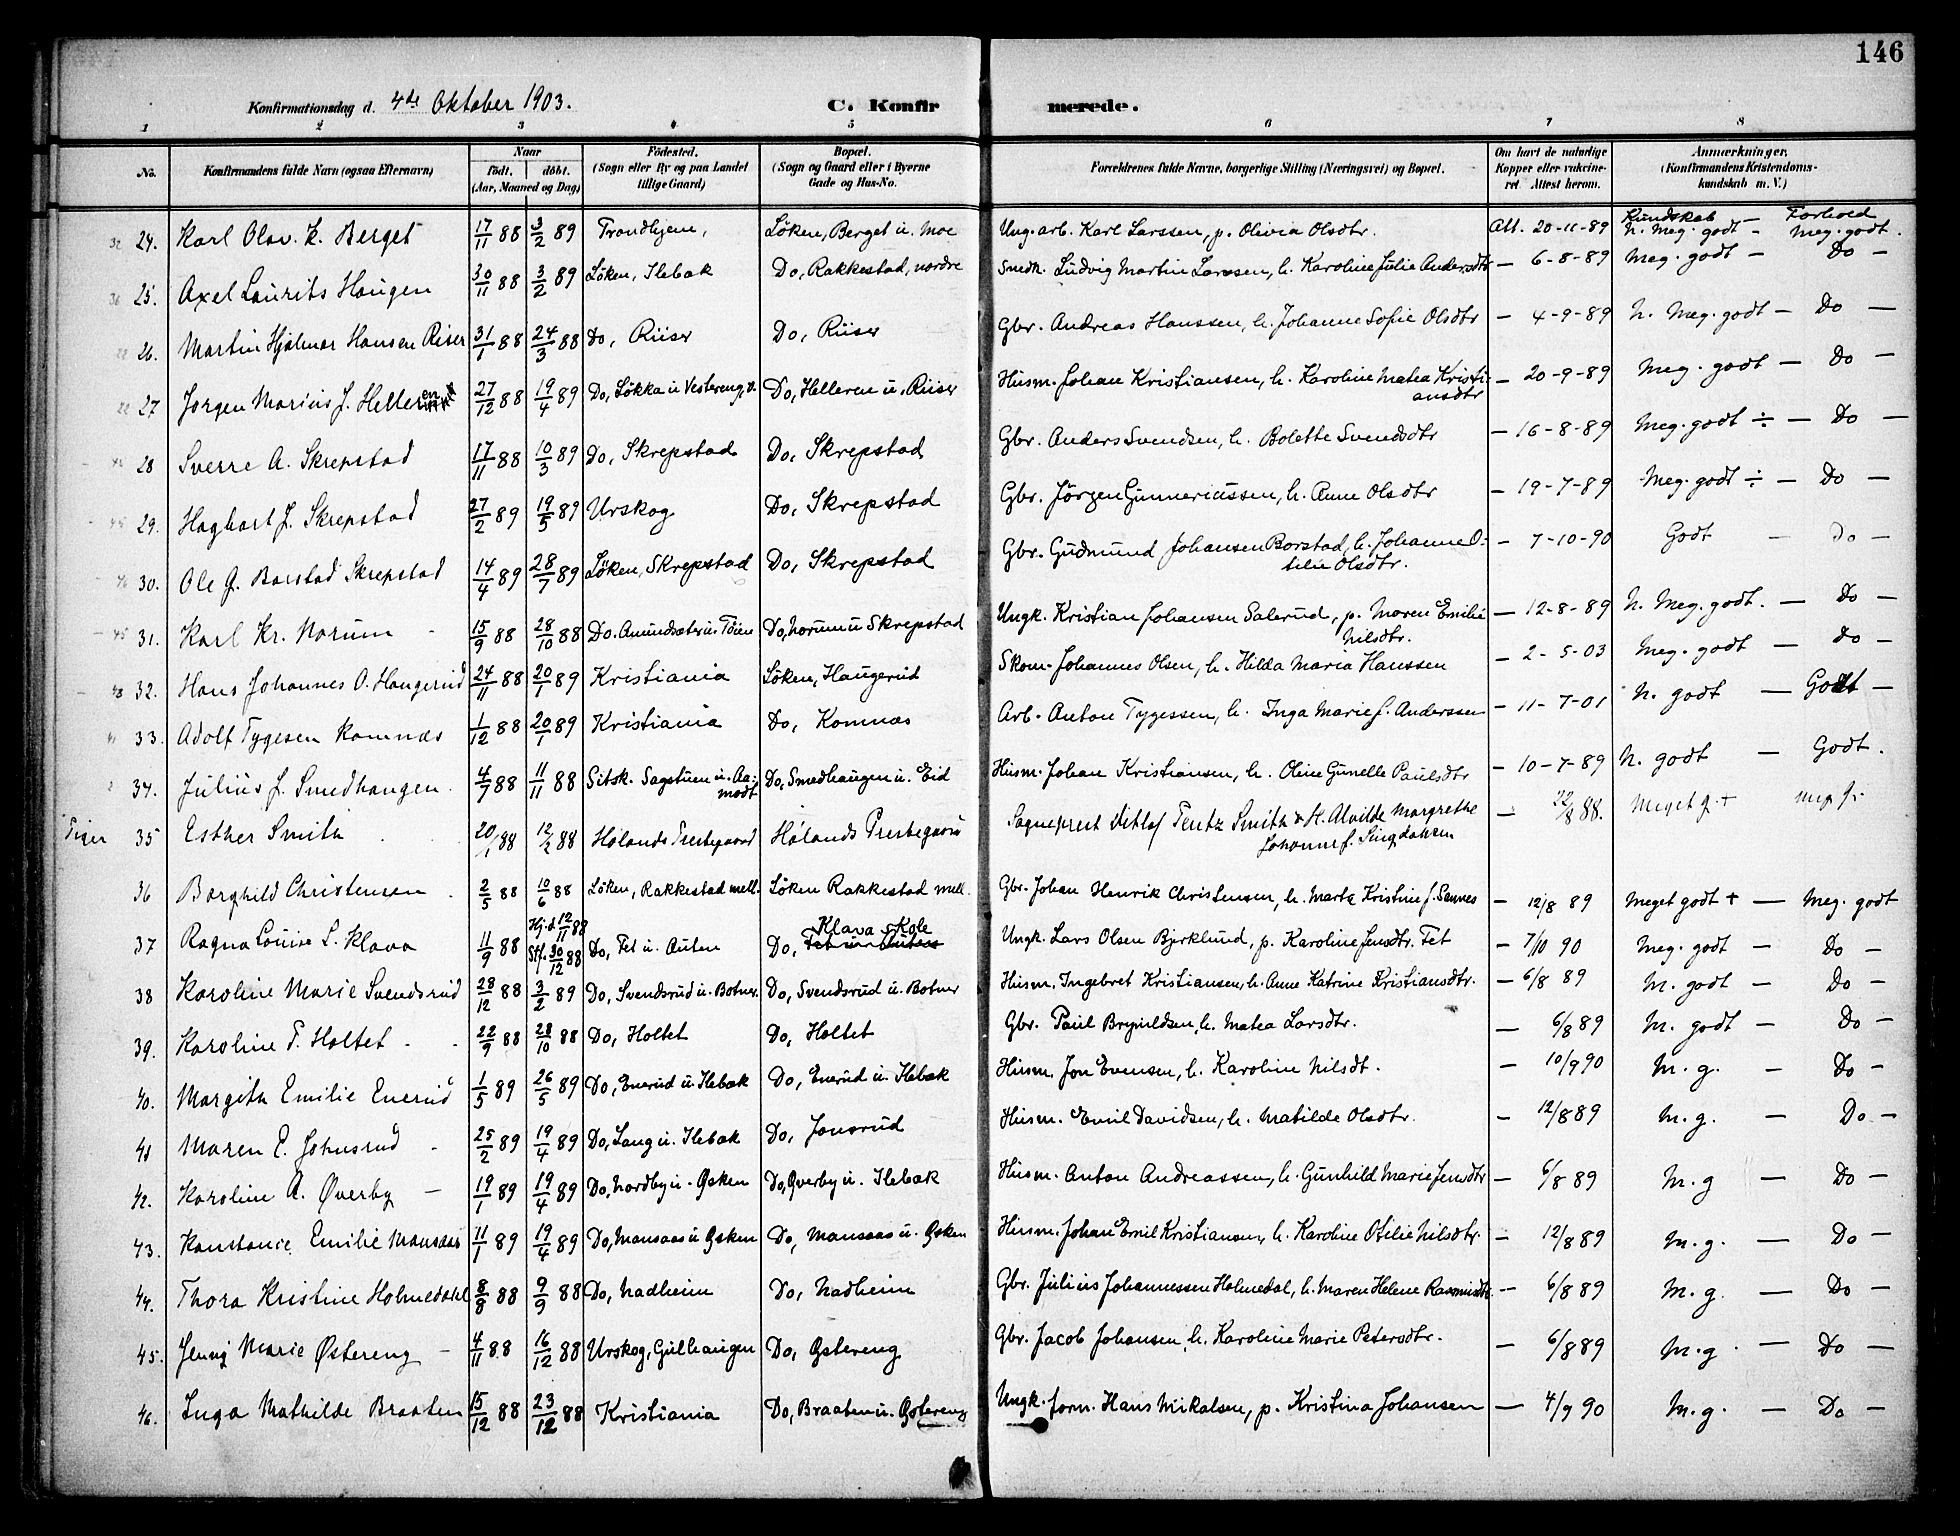 146
Konfirmationsdag d. 4de Oktober 1903. C. Konfirmerede.
1 2 3 4 5 6 7 8
No. Konfirmandens fulde Navn (ogsaa Efternavn) Naar født. døbt. (Aar, Maaned og Dag) Fødested. (Sogn eller By og paa Landet tillige Gaard) Bopæl. (Sogn og Gaard eller i Byerne Gade og Hus-No. Forældrenes fulde Navne, borgerlige Stilling (Næringsvei) og Bopæl. Om havt de naturlige Kopper eller vakcineret. Attest herom. Anmærkninger, (Konfirmandens Kristendomskundskab m. V.)
Kundskab — Forhold
24. Karl Olav. K. Berget 17/11 88 3/2 89 Trondhjem, Löken, Berget u. Moe Ung. arb. Karl Larssen, p. Olivia Olsdtr. Att. 20-11-89 N. meg. godt - meg. godt.
25. Axel Laurits Haugen 30/11 88 3/2 89 Löken, Ilebæk Do, Rakkestad, nordre Smedk. Ludvig Martin Larssen, h. Karoline Julie Andersdtr — 6-8-89 Meg. godt — Do —
26. Martin Hjalmar Hansen Riser 31/1 88 24/3 88 Do, Riiser Do, Riiser Gbr. Andreas Hanssen, h. Johanne Sofie Olsdtr — 4-9-89 N. Meg. godt — Do —
27 Jørgen Marius J. Helleren 27/12 88 19/4 89 Do, Løkka u Vestereng, v. Do, Helleren u. Riiser Husm. Johan Kristiansen, h. Karoline Matea Kristiansdtr — 20-9-89 Meg. godt — Do —
28 Sverre A. Skrepstad 17/11 88 10/3 89 Do, Skrepstad Do, Skrepstad Gbr. Anders Svendsen, h. Bolette Svendsdtr — 16-8-89 Meg. godt ÷ — Do —
29. Hagbart J. Skrepstad 27/2 89 19/5 89 Urskog Do, Skrepstad Gbr. Jörgen Gunneriussen, h. Anne Olsdtr — 19-7-89 Meg. godt ÷ — Do —
30. Ole G. Borstad Skrepstad 14/4 89 28/7 89 Löken, Skrepstad Do, Skrepstad Gbr. Gudmund Johansen Borstad, h. Johanne Otilie Olsdtr. — 7-10-90 Godt — Do —
31. Karl Kr. Norum 15/9 88 28/10 88 Do. Amundsæter u Töien Do, Norum u Skrepstad Ungk. Kristian Johansen Salerud, p. Maren Emilie Nilsdtr. — 12-8-89 N. Meg. godt. — Do —
32. Hans Johannes O. Haugerud 24/11 88 20/1 89 Kristiania Löken, Haugerud Skom. Johannes Olsen, h. Hilda Maria Hanssen — 2-5-03 Meg. godt — Do —
33. Adolf Tygesen Komnæs 1/12 88 20/1 89 Kristiania Do, Komnæs Arb. Anton Tygessen, h. Inga Marie f. Anderssen — 11-7-01 N. godt — Godt —
34. Julius J. Smedhaugen 4/7 88 11/11 88 Sitsk. Sagstuen u. Aamodt Do, Smedhaugen u. Eid Husm. Johan Kristiansen, h. Oline Gunelle Paulsdtr — 10-7-89 N. godt — Godt.
35 Esther Smith 20/1 88 12/2 88 Hølands Prestegaard Hølands Prestegaard Sogneprest Ditlef Tentz Smith & H. Alvilde Margrethe Johanne f. Singdahlsen — 22/8 88. Meget g. +
36 Borghild Christensen 2/5 88 10/6 88 Löken, Rakkestad mell. Löken Rakkestad mell. Gbr. Johan Henrik Christensen, h. Marte Kristine f. Sannes — 12/8 89 Meget godt + — Meg. godt
37 Ragna Louise L. Klava 11/9 88 Hj.d 12/1 88 Stf. 30/12 88 Do, Tet u. Auten Do, Klava Skole Ungk. Lars Olsen Bjerklund, p. Karoline Jensdtr. Tet — 7/10 90 Meg. godt — Do —
38 Karoline Marie Svendsrud 28/12 88 3/2 89 Do, Svendsrud u. Botner. Do, Svendsrud u. Botner Husm. Ingebret Kristiansen, h. Anne Katrine Kristiansdtr. — 6/8 89 M. godt — Do —
39. Karoline P. Holtet 22/9 88 28/10 88 Do, Holtet Do, Holtet Gbr. Paul Brynildsen, h. Matea Larsdtr. — 6/8 89 M. godt — Do —
40. Margith Emilie Enerud 1/5 89 26/5 89 Do, Enerud u. Ilebæk Do, Enerud u. Ilebæk Husm. Jon Evensen, h. Karoline Nilsdt. — 10/9 90 M. g. — Do —
41 Maren E. Johnsrud 25/2 89 19/4 89 Do, Laug u. Ilebæk Do, Jonsrud Husm. Emil Davidsen, h. Matilde Olsdtr. — 12/8 89 M. g. — Do —
42. Karoline A. Øverby 19/1 89 19/4 89 Do, Nordby u. Øsken Do, Øverby u. Ilebæk Husm. Anton Andreassen, h. Gunhild Marie Jensdtr — 6/8 89 M. g — Do —
43. Konstance Emilie Mansaas 11/1 89 19/4 89 Do, Mansaas u Øsken Do, Mansaas u. Øsken Husm. Johan Emil Kristiansen, h. Karoline Otilie Nilsdtr. — 12/8 89 M. g. — Do —
44. Thora Kristine Holmedahl 8/8 88 9/9 88 Do, Nadheim Do, Nadheim Gbr. Julius Johannessen Holmedal, h. Maren Helene Rasmusdtr. — 6/8 89 M. g. — Do —
45. Jenny Marie Østereng 4/11 88 16/12 88 Urskog, Gulhaugen Do, Østereng Gbr. Jacob Johansen, h. Karoline Marie Petersdtr. — 6/8 89 M. g. — Do —
46. Inga Mathilde Braaten 15/12 88 23/12 88 Kristiania Do, Braaten u. Østereng Ungk. form. Hans Mikalsen, p. Kristina Johansen — 4/9 90 M. g. — Do —